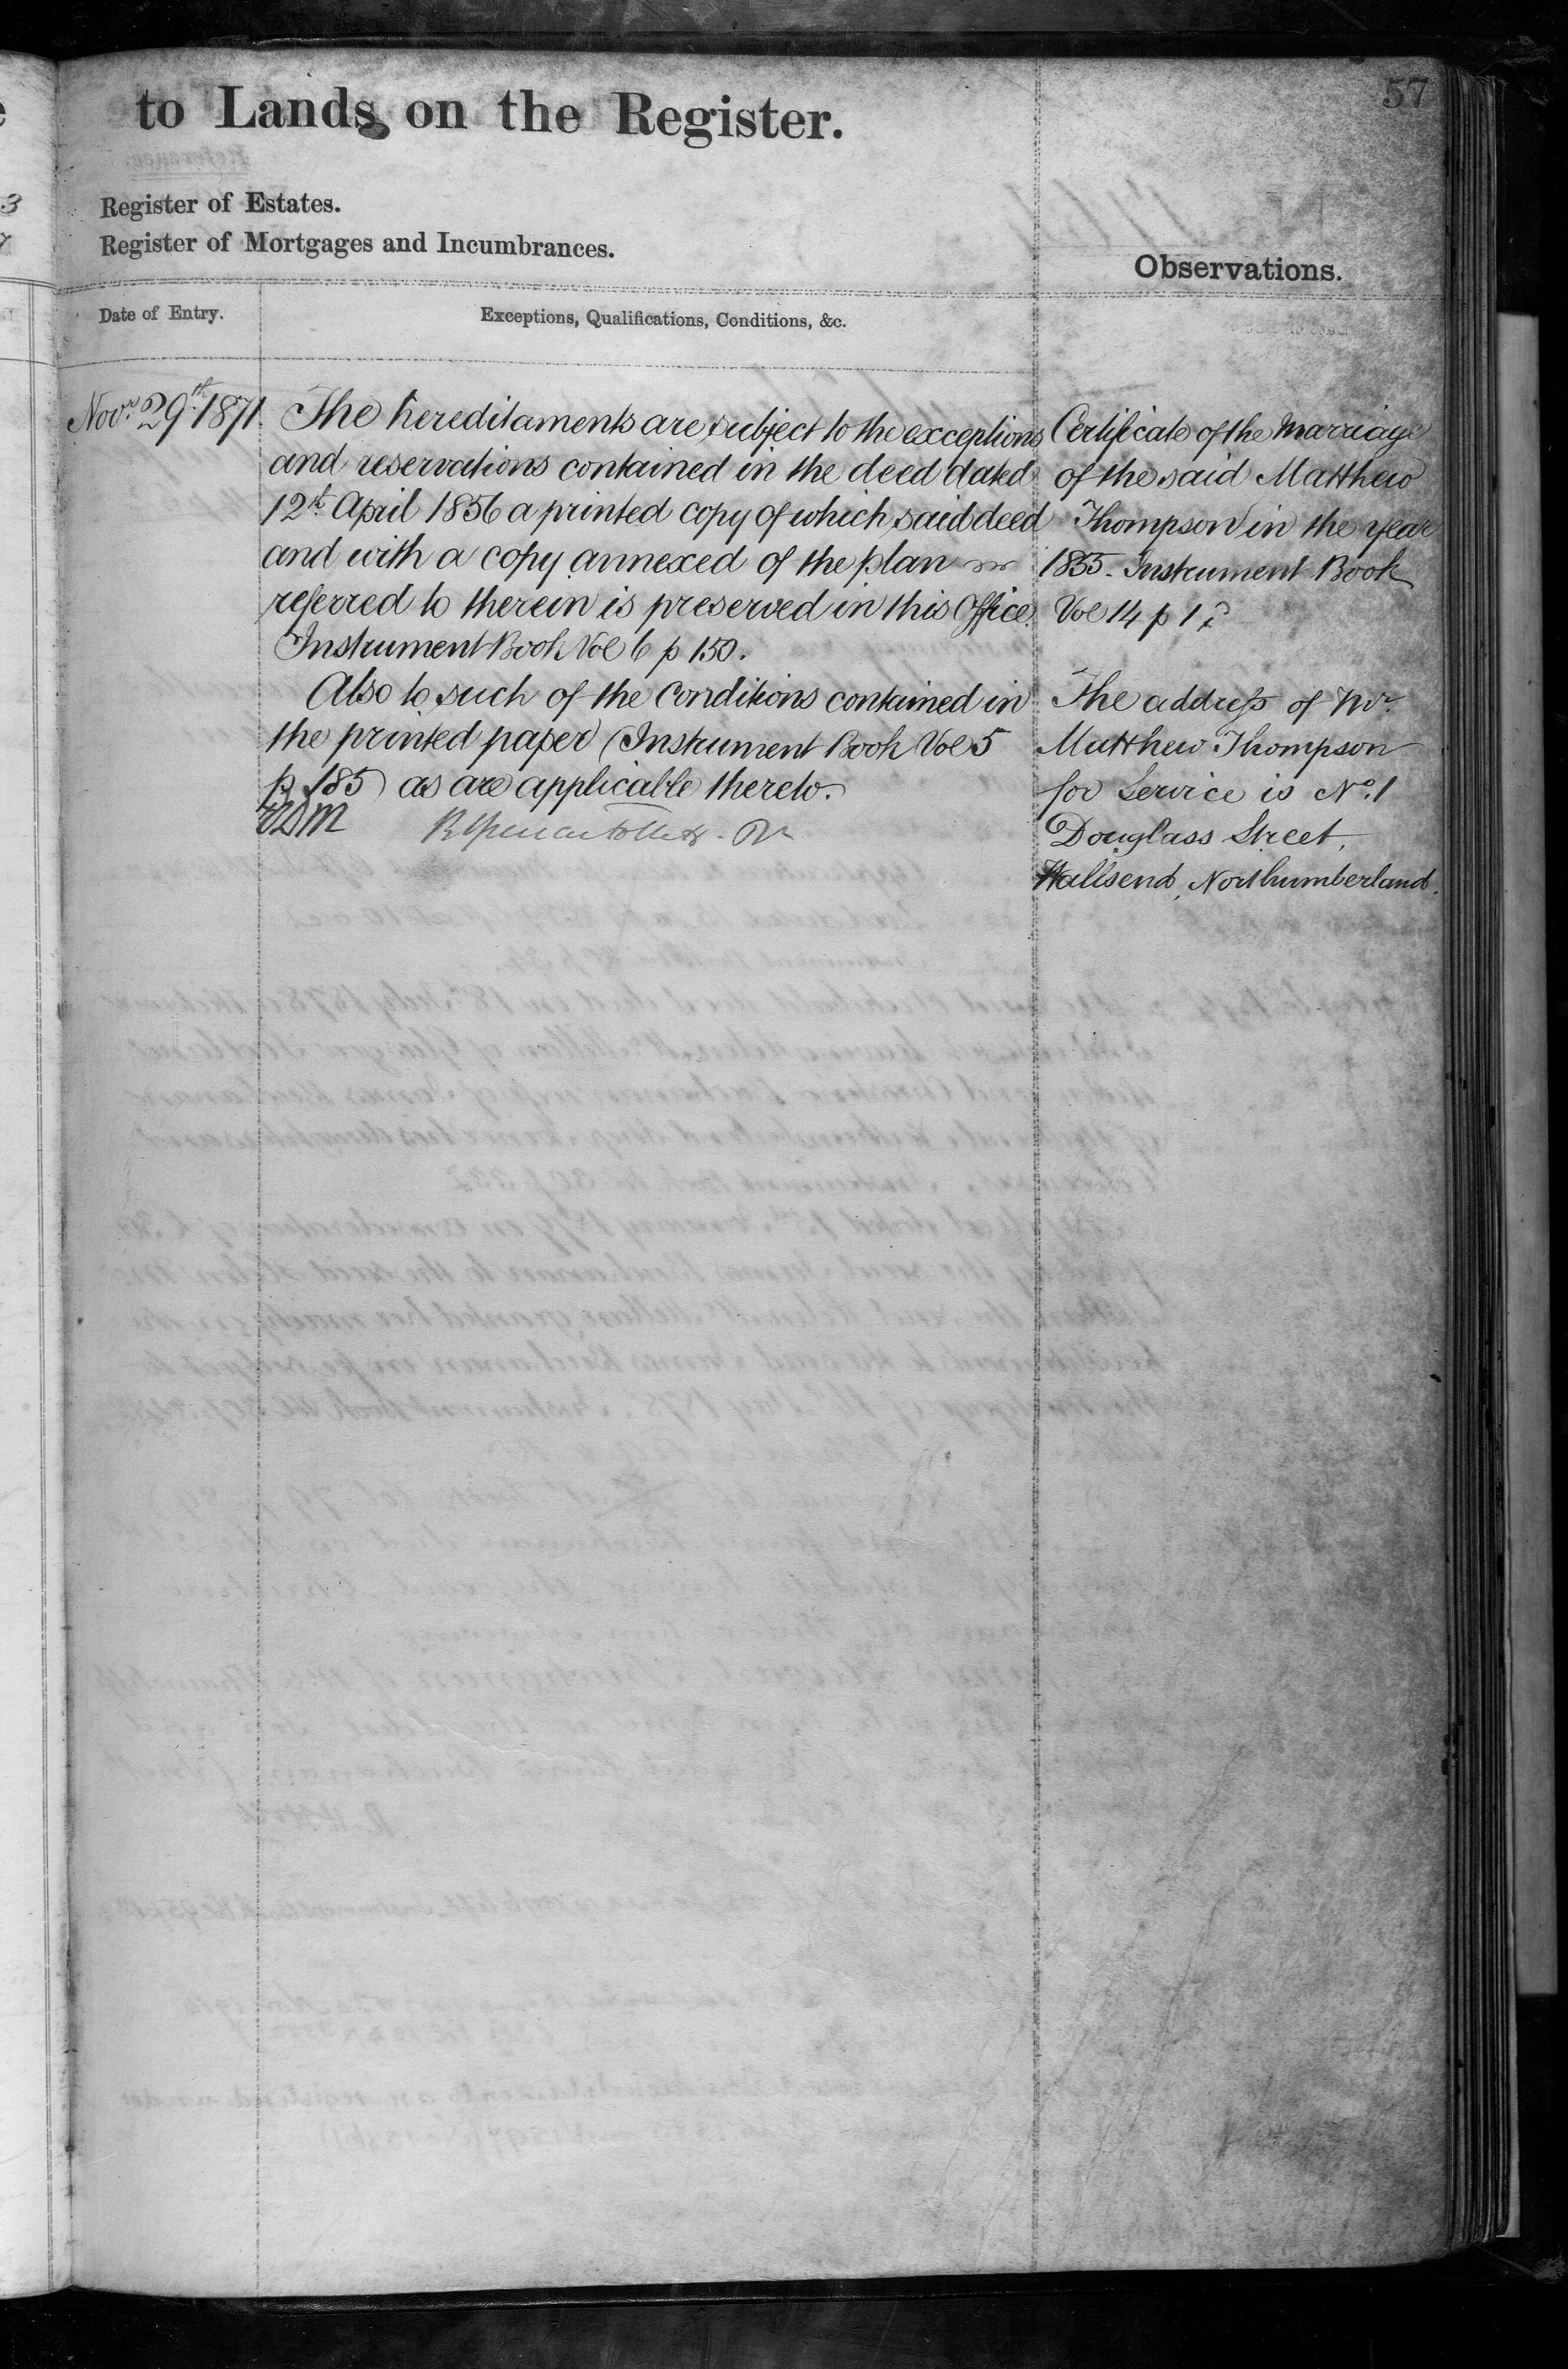 57
to Lands on the Register.
Register of Estates.
Register of Mortgages and Incumbrances.
Observations.
Date of Entry.
Exceptions, Qualifications, Conditions, &c.
Novr. 29th. 1871.
The hereditaments are subject to the exceptions
and reservations contained in the deed dated
12th April 1856 a printed copy of which said deed
and with a copy annexed of the plan
referred to therein is preserved in this Office.
Instrument Book Vol 6 p 150.
Also to such of the Conditions contained in
the printed paper (Instrument Book Vol 5
p 185) as are applicable thereto.
Certificate of the Marriage
of the said Matthew
Thompson in the year
1855. Instrument Book
Vol 14 p 1
The address of Mr.
Matthew Thompson
for Service is No. 1
Douglass Street,
Wallsend, Northumberland.